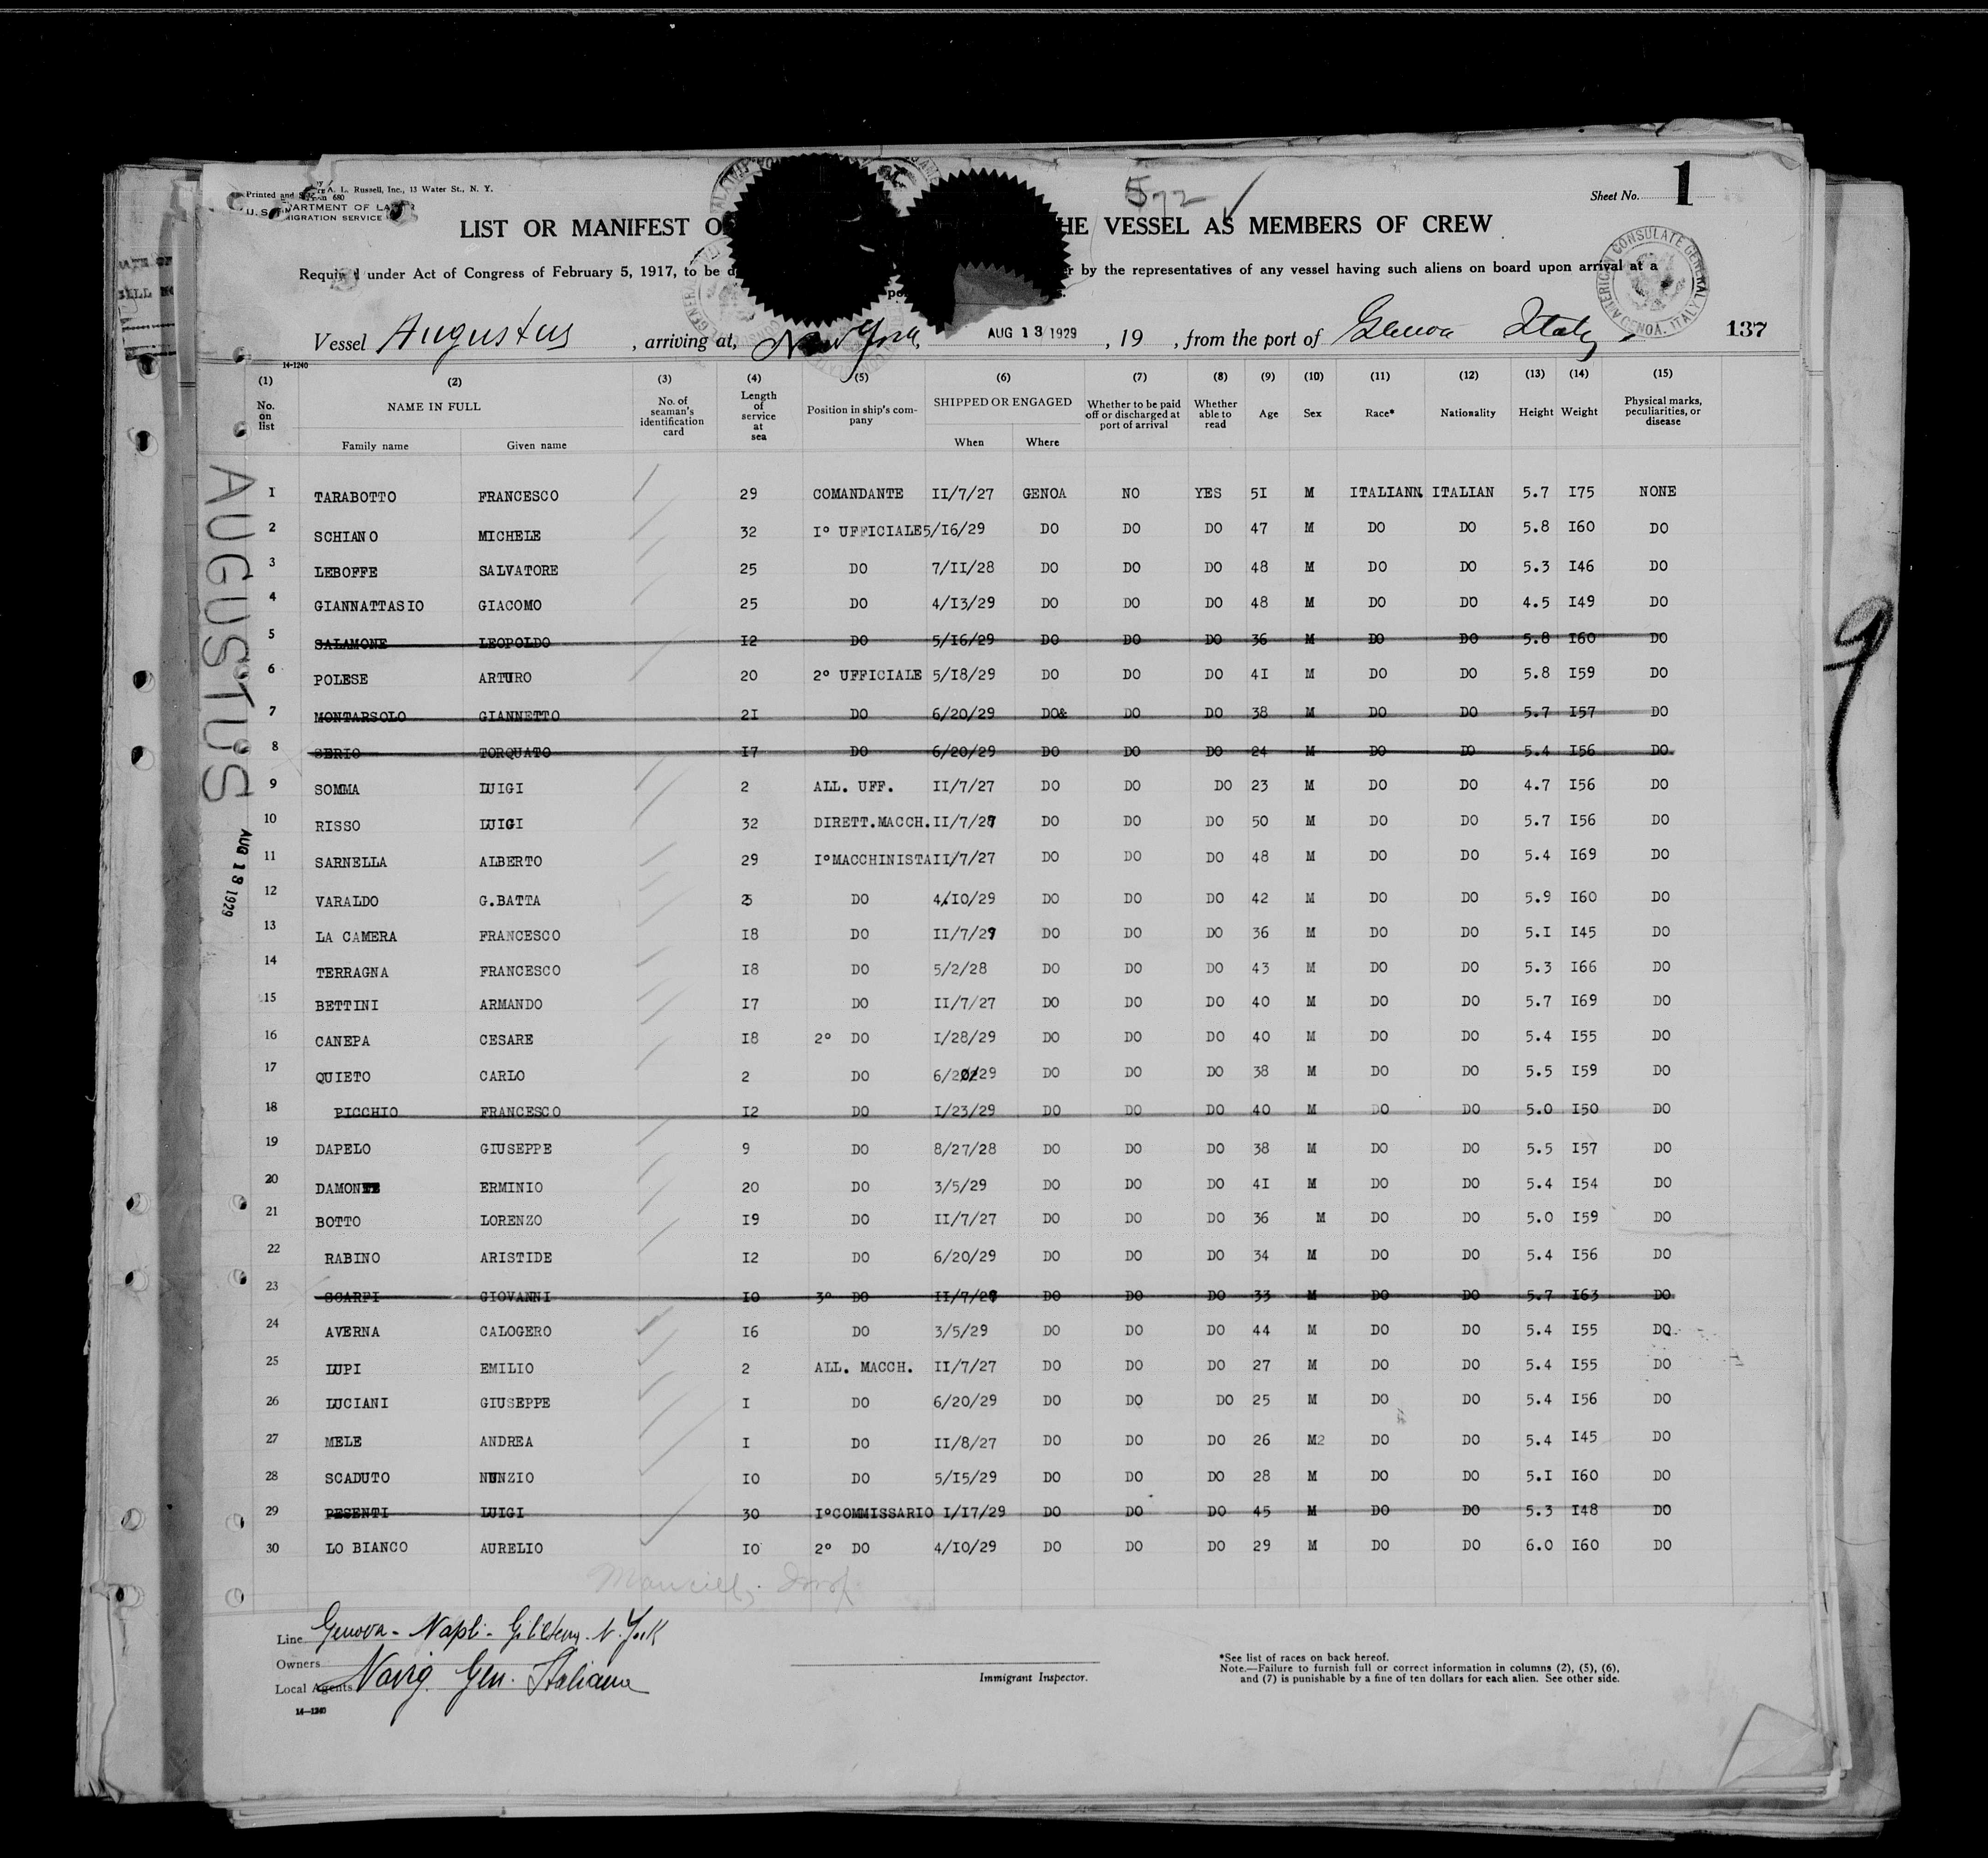 Printed and Sold by A. L. Russell, Inc., 13 Water St., N. Y.
U. S. DEPARTMENT OF LABOR
IMMIGRATION SERVICE
572
Sheet No. 1
LIST OR MANIFEST OF THE VESSEL AS MEMBERS OF CREW
Required under Act of Congress of February 5, 1917, to be by the representatives of any vessel having such aliens on board upon arrival at a
AMERICAN CONSULATE GENERAL GENOA, ITALY
Vessel Augustus, arriving at, New York, AUG 13 1929, 19 , from the port of Genoa Italy 137
14-1240
(1) (2) (3) (4) (5) (6) (7) (8) (9) (10) (11) (12) (13) (14) (15)
No. on list NAME IN FULL No. of seaman's identification card Length of service at sea Position in ship's company SHIPPED OR ENGAGED Whether to be paid off or discharged at port of arrival Whether able to read Age Sex Race* Nationality Height Weight Physical marks, peculiarities, or disease
Family name Given name When Where
1 TARABOTTO FRANCESCO 29 COMANDANTE II/7/27 GENOA NO YES 5I M ITALIANN ITALIAN 5.7 I75 NONE
2 SCHIANO MICHELE 32 Iº UFFICIALE 5/I6/29 DO DO DO 47 M DO DO 5.8 I60 DO
3 LEBOFFE SALVATORE 25 DO 7/II/28 DO DO DO 48 M DO DO 5.3 I46 DO
4 GIANNATTASIO GIACOMO 25 DO 4/I3/29 DO DO DO 48 M DO DO 4.5 I49 DO
5 SALAMONE LEOPOLDO I2 DO 5/I6/29 DO DO DO 36 M DO DO 5.8 I60 DO
6 POLESE ARTURO 20 2º UFFICIALE 5/I8/29 DO DO DO 4I M DO DO 5.8 I59 DO
7 MONTARSOLO GIANNETTO 2I DO 6/20/29 DO& DO DO 38 M DO DO 5.7 I57 DO
8 SERIO TORQUATO I7 DO 6/20/29 DO DO DO 24 M DO DO 5.4 I56 DO
9 SOMMA LUIGI 2 ALL. UFF. II/7/27 DO DO DO 23 M DO DO 4.7 I56 DO
10 RISSO LUIGI 32 DIRETT.MACCH. II/7/27 DO DO DO 50 M DO DO 5.7 I56 DO
11 SARNELLA ALBERTO 29 IºMACCHINISTA II/7/27 DO DO DO 48 M DO DO 5.4 I69 DO
12 VARALDO G.BATTA 25 DO 4/10/29 DO DO DO 42 M DO DO 5.9 I60 DO
13 LA CAMERA FRANCESCO I8 DO II/7/29 DO DO DO 36 M DO DO 5.I I45 DO
14 TERRAGNA FRANCESCO I8 DO 5/2/28 DO DO DO 43 M DO DO 5.3 I66 DO
15 BETTINI ARMANDO I7 DO II/7/27 DO DO DO 40 M DO DO 5.7 I69 DO
16 CANEPA CESARE I8 2º DO I/28/29 DO DO DO 40 M DO DO 5.4 I55 DO
17 QUIETO CARLO 2 DO 6/20/29 DO DO DO 38 M DO DO 5.5 I59 DO
18 PICCHIO FRANCESCO I2 DO I/23/29 DO DO DO 40 M DO DO 5.0 I50 DO
19 DAPELO GIUSEPPE 9 DO 8/27/28 DO DO DO 38 M DO DO 5.5 I57 DO
20 DAMONTE ERMINIO 20 DO 3/5/29 DO DO DO 4I M DO DO 5.4 I54 DO
21 BOTTO LORENZO I9 DO II/7/27 DO DO DO 36 M DO DO 5.0 I59 DO
22 RABINO ARISTIDE I2 DO 6/20/29 DO DO DO 34 M DO DO 5.4 I56 DO
23 SCARPI GIOVANNI IO 3º DO II/7/28 DO DO DO 33 M DO DO 5.7 I63 DO
24 AVERNA CALOGERO I6 DO 3/5/29 DO DO DO 44 M DO DO 5.4 I55 DO
25 LUPI EMILIO 2 ALL. MACCH. II/7/27 DO DO DO 27 M DO DO 5.4 I55 DO
26 LUCIANI GIUSEPPE I DO 6/20/29 DO DO DO 25 M DO DO 5.4 I56 DO
27 MELE ANDREA I DO II/8/27 DO DO DO 26 M2 DO DO 5.4 I45 DO
28 SCADUTO NUNZIO IO DO 5/I5/29 DO DO DO 28 M DO DO 5.I I60 DO
29 PESENTI LUIGI 30 IºCOMMISSARIO I/I7/29 DO DO DO 45 M DO DO 5.3 I48 DO
30 LO BIANCO AURELIO IO 2º DO 4/IO/29 DO DO DO 29 M DO DO 6.0 I60 DO
AUGUSTUS
AUG 13 1929
9
Line Genova - Napli - Gibilterra - N. York
Owners Navig. Gen. Italiana
Local Agents
14-1240
Immigrant Inspector.
*See list of races on back hereof.
Note.—Failure to furnish full or correct information in columns (2), (5), (6),
and (7) is punishable by a fine of ten dollars for each alien. See other side.